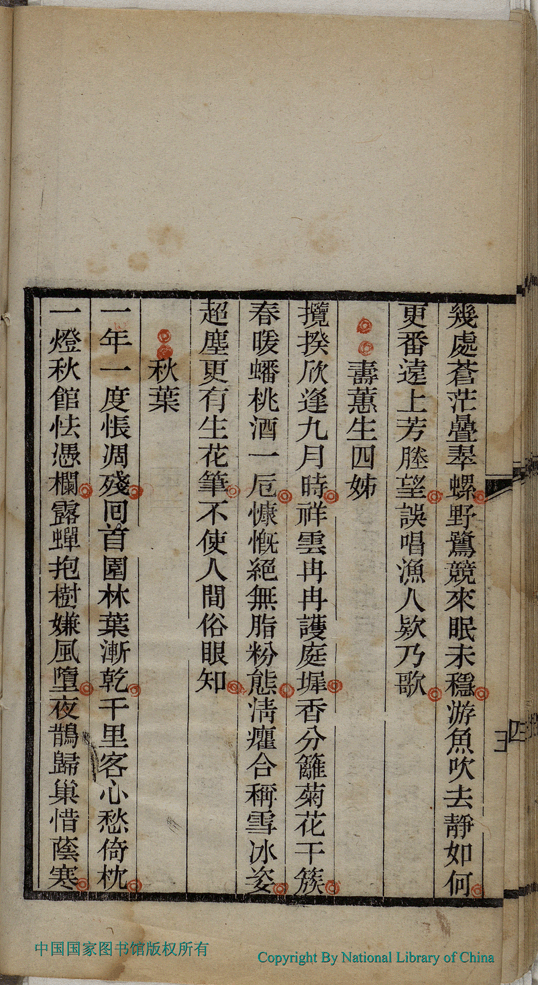 幾處蒼茫疊翠螺野鷺競來眠未穩游魚吹去靜如何
更番遠上芳塍望誤唱漁人欵乃歌
壽蕙生四姊
攬揆欣逢九月時祥雲冉冉護庭墀香分籬菊花千簇
春暖蟠桃酒一卮慷慨絕無脂粉態清癯合稱雪冰姿
超塵更有生花筆不使人間俗眼知
秋葉
一年一度悵凋殘回首園林葉漸乾千里客心愁倚枕
一燈秋館怯憑欄露蟬抱樹嫌風墮夜鵲歸巢惜蔭寒
中国国家图书馆版权所有
Copyright By National Library of China